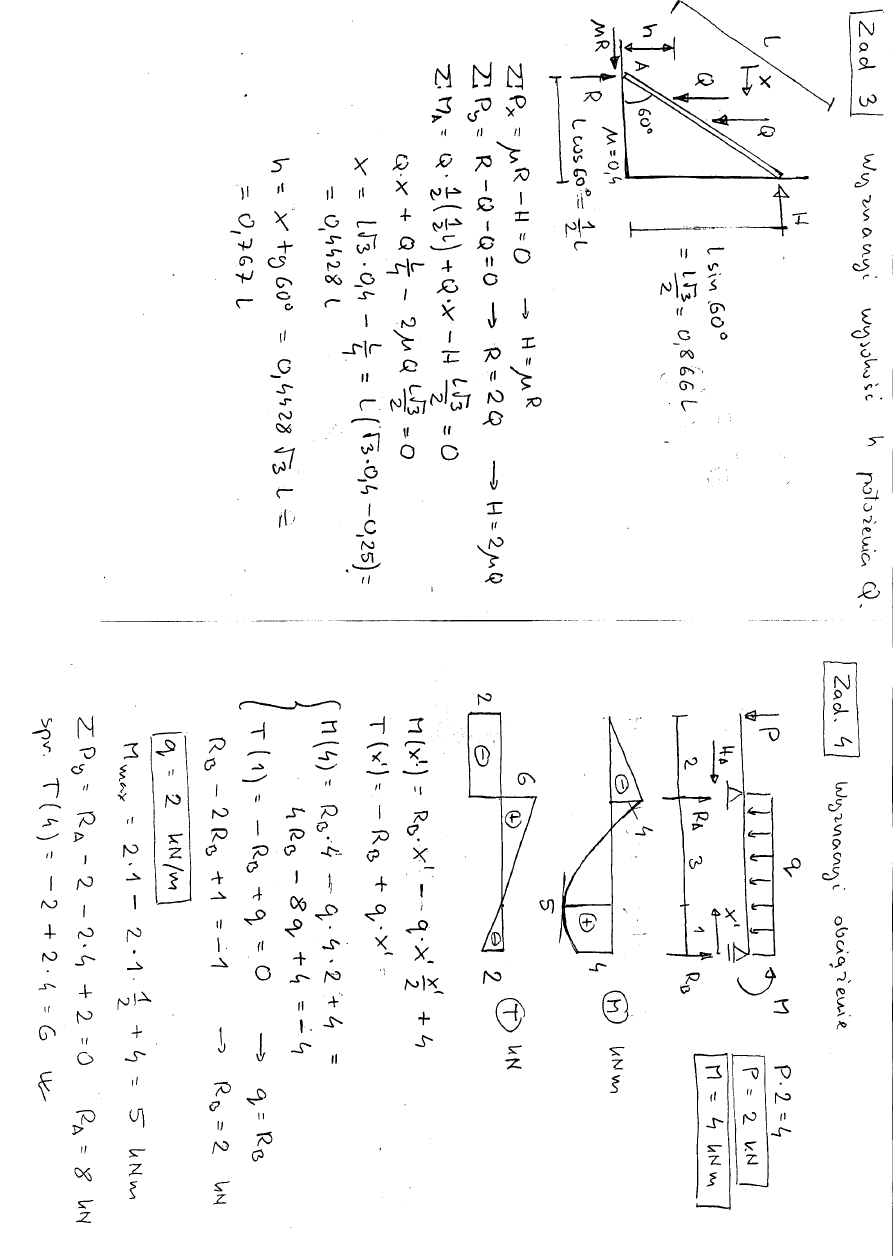 Zad 3 Wyznaczyć wysokość h położenia Q.
L
x
Q
Q
H
h
A
60°
μR
R
μ=0,4
L cos 60° = ½ L
L sin 60°
= L√3/2 = 0,866 L
ΣPx = μR - H = 0 → H = μR
ΣPy = R - Q - Q = 0 → R = 2Q → H = 2μQ
ΣMA = Q · ½(½L) + Q·x - H L√3/2 = 0
Q·x + Q L/4 - 2μQ L√3/2 = 0
x = L√3·0,4 - L/4 = L(√3·0,4 - 0,25) =
= 0,4428 L
h = x tg 60° = 0,4428 √3 L =
= 0,767 L
Zad. 4 Wyznaczyć obciążenie
q
M
P
HA
x'
RA
RB
2 3 1
P·2=4
P = 2 kN
M = 4 kNm
⊖ 4
⊕
5
4
M kNm
6
2 ⊖ ⊕ ⊖ 2
T kN
M(x') = RB·x' - q·x' x'/2 + 4
T(x') = -RB + q·x'
M(4) = RB·4 - q·4·2 + 4 =
4RB - 8q + 4 = -4
T(1) = -RB + q = 0 → q = RB
RB - 2RB + 1 = -1 → RB = 2 kN
q = 2 kN/m
Mmax = 2·1 - 2·1·½ + 4 = 5 kNm
ΣPy = RA - 2 - 2·4 + 2 = 0 RA = 8 kN
spr. T(4) = -2 + 2·4 = 6